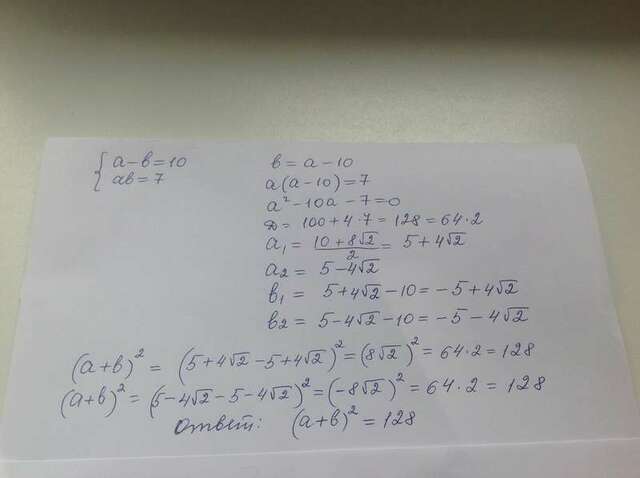 { a - b = 10
ab = 7
b = a - 10
a(a - 10) = 7
a² - 10a - 7 = 0
D = 100 + 4·7 = 128 = 64·2
a₁ = (10 + 8√2)/2 = 5 + 4√2
a₂ = 5 - 4√2
b₁ = 5 + 4√2 - 10 = -5 + 4√2
b₂ = 5 - 4√2 - 10 = -5 - 4√2
(a+b)² = (5 + 4√2 - 5 + 4√2)² = (8√2)² = 64·2 = 128
(a+b)² = (5 - 4√2 - 5 - 4√2)² = (-8√2)² = 64·2 = 128
Ответ: (a+b)² = 128